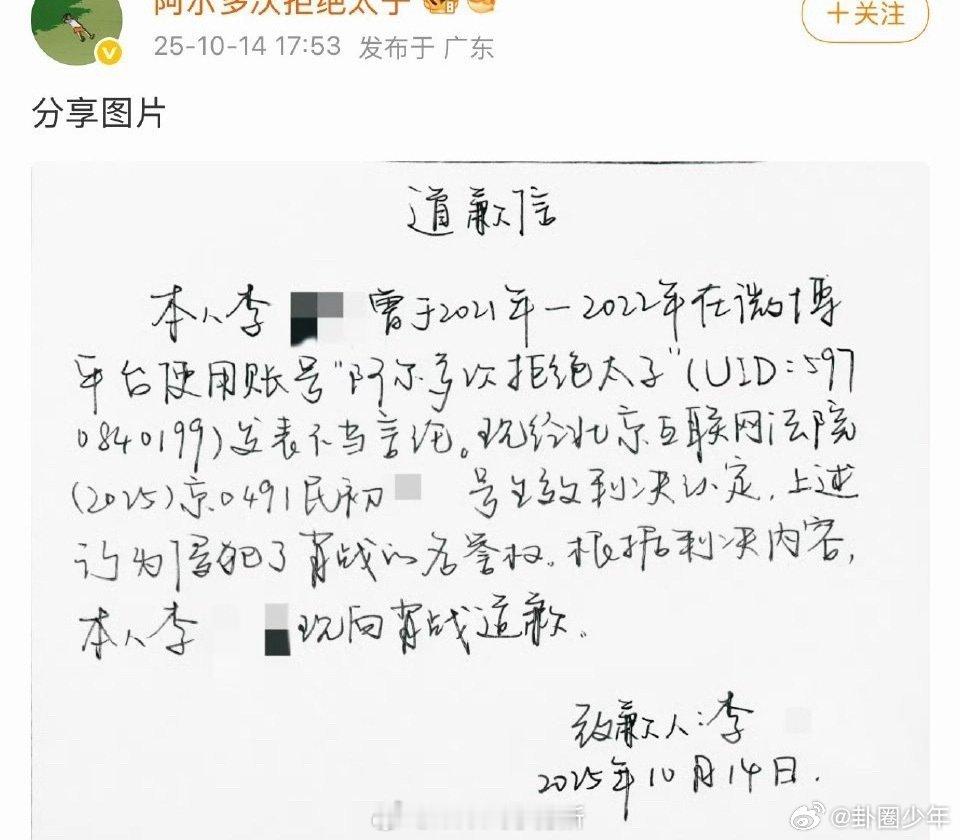 阿尔多次拒绝太子
+关注
25-10-14 17:53 发布于 广东
分享图片
道歉信
本人李 曾于2021年-2022年在微博
平台使用账号"阿尔多次拒绝太子"(UID:597
0840199)发表不当言论。现经北京互联网法院
(2025)京0491民初 号生效判决认定,上述
行为侵犯了肖战的名誉权。根据判决内容,
本人李 现向肖战道歉。
致歉人:李
2025年10月14日.
@卦圈少年